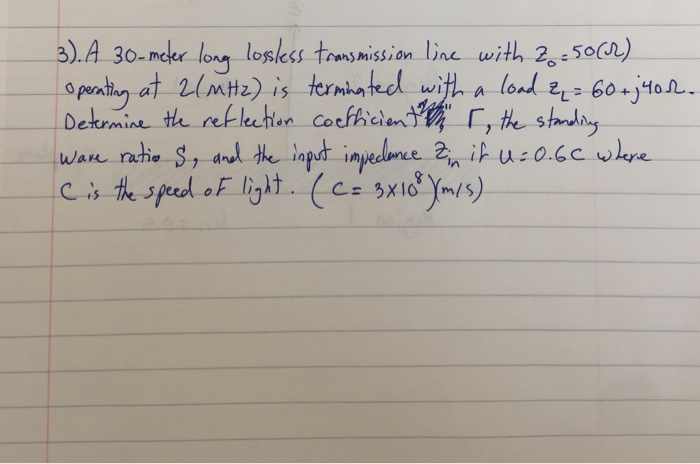 3). A 30-meter long lossless transmission line with Z₀=50(Ω)
operating at 2(MHz) is terminated with a load Z_L = 60+j40Ω.
Determine the reflection coefficient Γ, the standing
wave ratio S, and the input impedance Z_in if u=0.6C where
C is the speed of light. (C= 3×10⁸)(m/s)